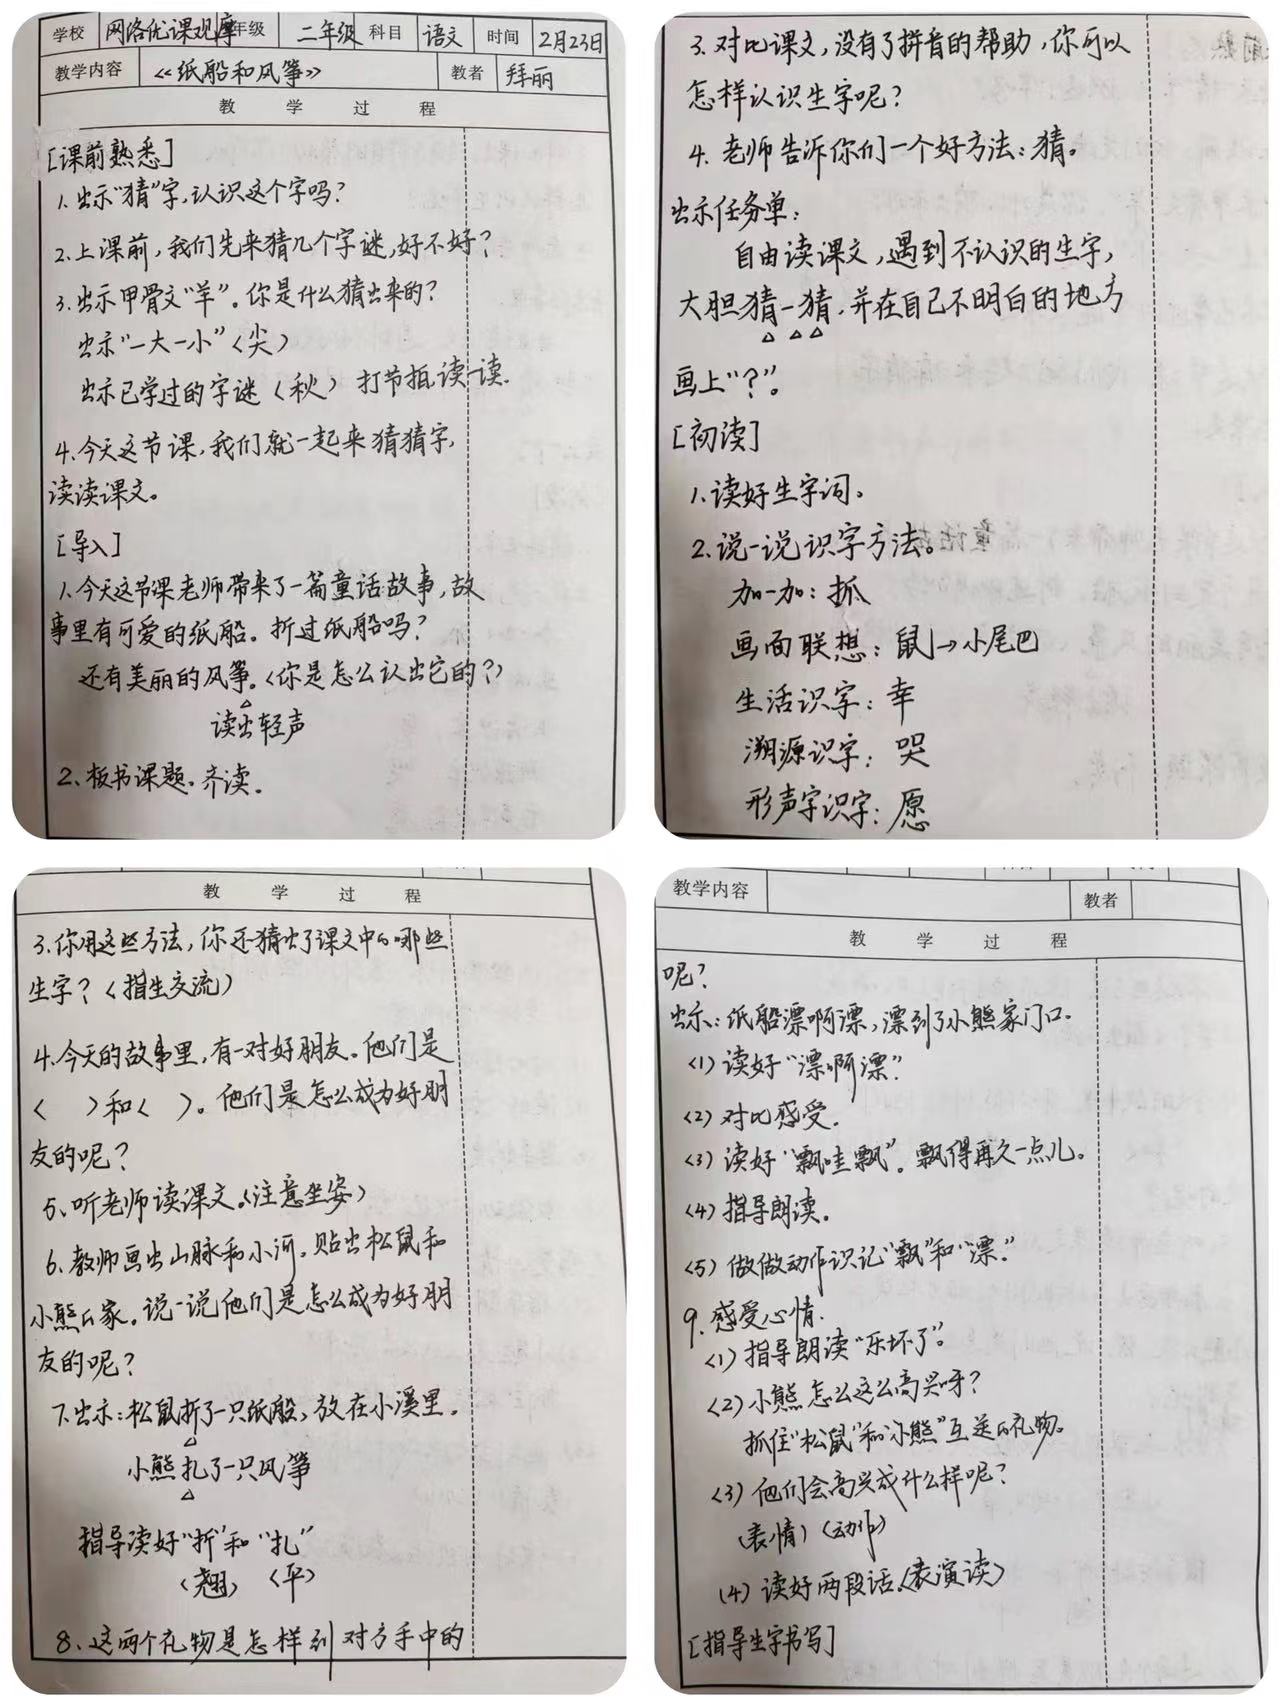 学校 网络优课观摩 年级 二年级 科目 语文 时间 2月23日
教学内容 《纸船和风筝》 教者 拜丽
教 学 过 程
[课前熟悉]
1.出示“猜”字,认识这个字吗?
2.上课前,我们先来猜几个字谜,好不好?
3.出示甲骨文“羊”。你是什么猜出来的?
出示“一大一小”〈尖〉
出示已学过的字谜〈秋〉 打节拍读一读.
4.今天这节课,我们就一起来猜猜字,
读读课文。
[导入]
1.今天这节课老师带来了一篇童话故事,故
事里有可爱的纸船。折过纸船吗?
还有美丽的风筝。〈你是怎么认出它的?〉
△
读出轻声
2、板书课题。齐读。
3.对比课文,没有了拼音的帮助,你可以
怎样认识生字呢?
4.老师告诉你们一个好方法:猜。
出示任务单:
自由读课文,遇到不认识的生字,
大胆猜一猜,并在自己不明白的地方
△ △ △
画上“?”。
[初读]
1.读好生字词。
2.说一说识字方法。
加一加:抓
画面联想:鼠→小尾巴
生活识字:幸
溯源识字:哭
形声字识字:愿
教 学 过 程
3.你用这些方法,你还猜出了课文中的哪些
生字?〈指生交流〉
4.今天的故事里,有一对好朋友。他们是
〈 〉和〈 〉。他们是怎么成为好朋
友的呢?
5、听老师读课文。〈注意坐姿〉
6、教师画出山脉和小河。贴出松鼠和
小熊的家。说一说他们是怎么成为好朋
友的呢?
7.出示:松鼠折了一只纸船,放在小溪里。
△
小熊扎了一只风筝
△
指导读好“折”和“扎”
〈翘〉 〈平〉
8、这两个礼物是怎样到对方手中的
教学内容 教者
教 学 过 程
呢?
出示:纸船漂啊漂,漂到了小熊家门口.
〈1〉读好“漂啊漂”.
〈2〉对比感受.
〈3〉读好“飘哇飘”。飘得再久一点儿。
〈4〉指导朗读。
〈5〉做做动作识记“飘”和“漂”.
9.感受心情.
〈1〉指导朗读“乐坏了”.
〈2〉小熊怎么这么高兴呀?
抓住“松鼠”和“小熊”互送的礼物。
〈3〉他们会高兴成什么样呢?
(表情)(动作)
(4)读好两段话.〈表演读〉
[指导生字书写]